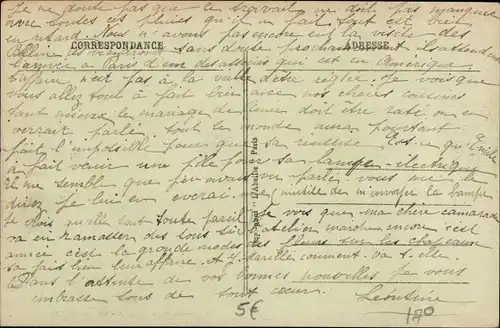 Je ne doute pas que le travail ne doit pas manquer
avec toutes ces pluies qu'il a fait tout est bien
en retard. Nous n'avons pas encore eu la visite des
CORRESPONDANCE
ADRESSE
sans doute ils attendent
l'arrivée à Paris d'un des associés qui est en Amérique.
L'affaire n'est pas à la veille d'être réglée. Je vois que
vous allez tout à fait bien avec nos chères cousines
tant mieux le mariage de doit être raté on en
verrait parlé. tout le monde aura pourtant
fait l'impossible pour sa réussite. Est-ce qu'Emile
a fait venir une pile pour sa lampe électrique
il me semble que j'en avais vous me
direz je lui en enverrai. (inutile de m'envoyer la lampe
je crois qu'elle sont toute pareil Je vois que ma chère camarade
va en ramasser des sous si l'atelier marche encore c'est
année c'est la grande mode des fleurs sur les chapeaux
sa fais bien leur affaire. Et comment va-t-elle.
Dans l'attente de vos bonnes nouvelles je vous
embrasse tous de tout cœur. Léontine
"L'Abeille" Paris
5€
170